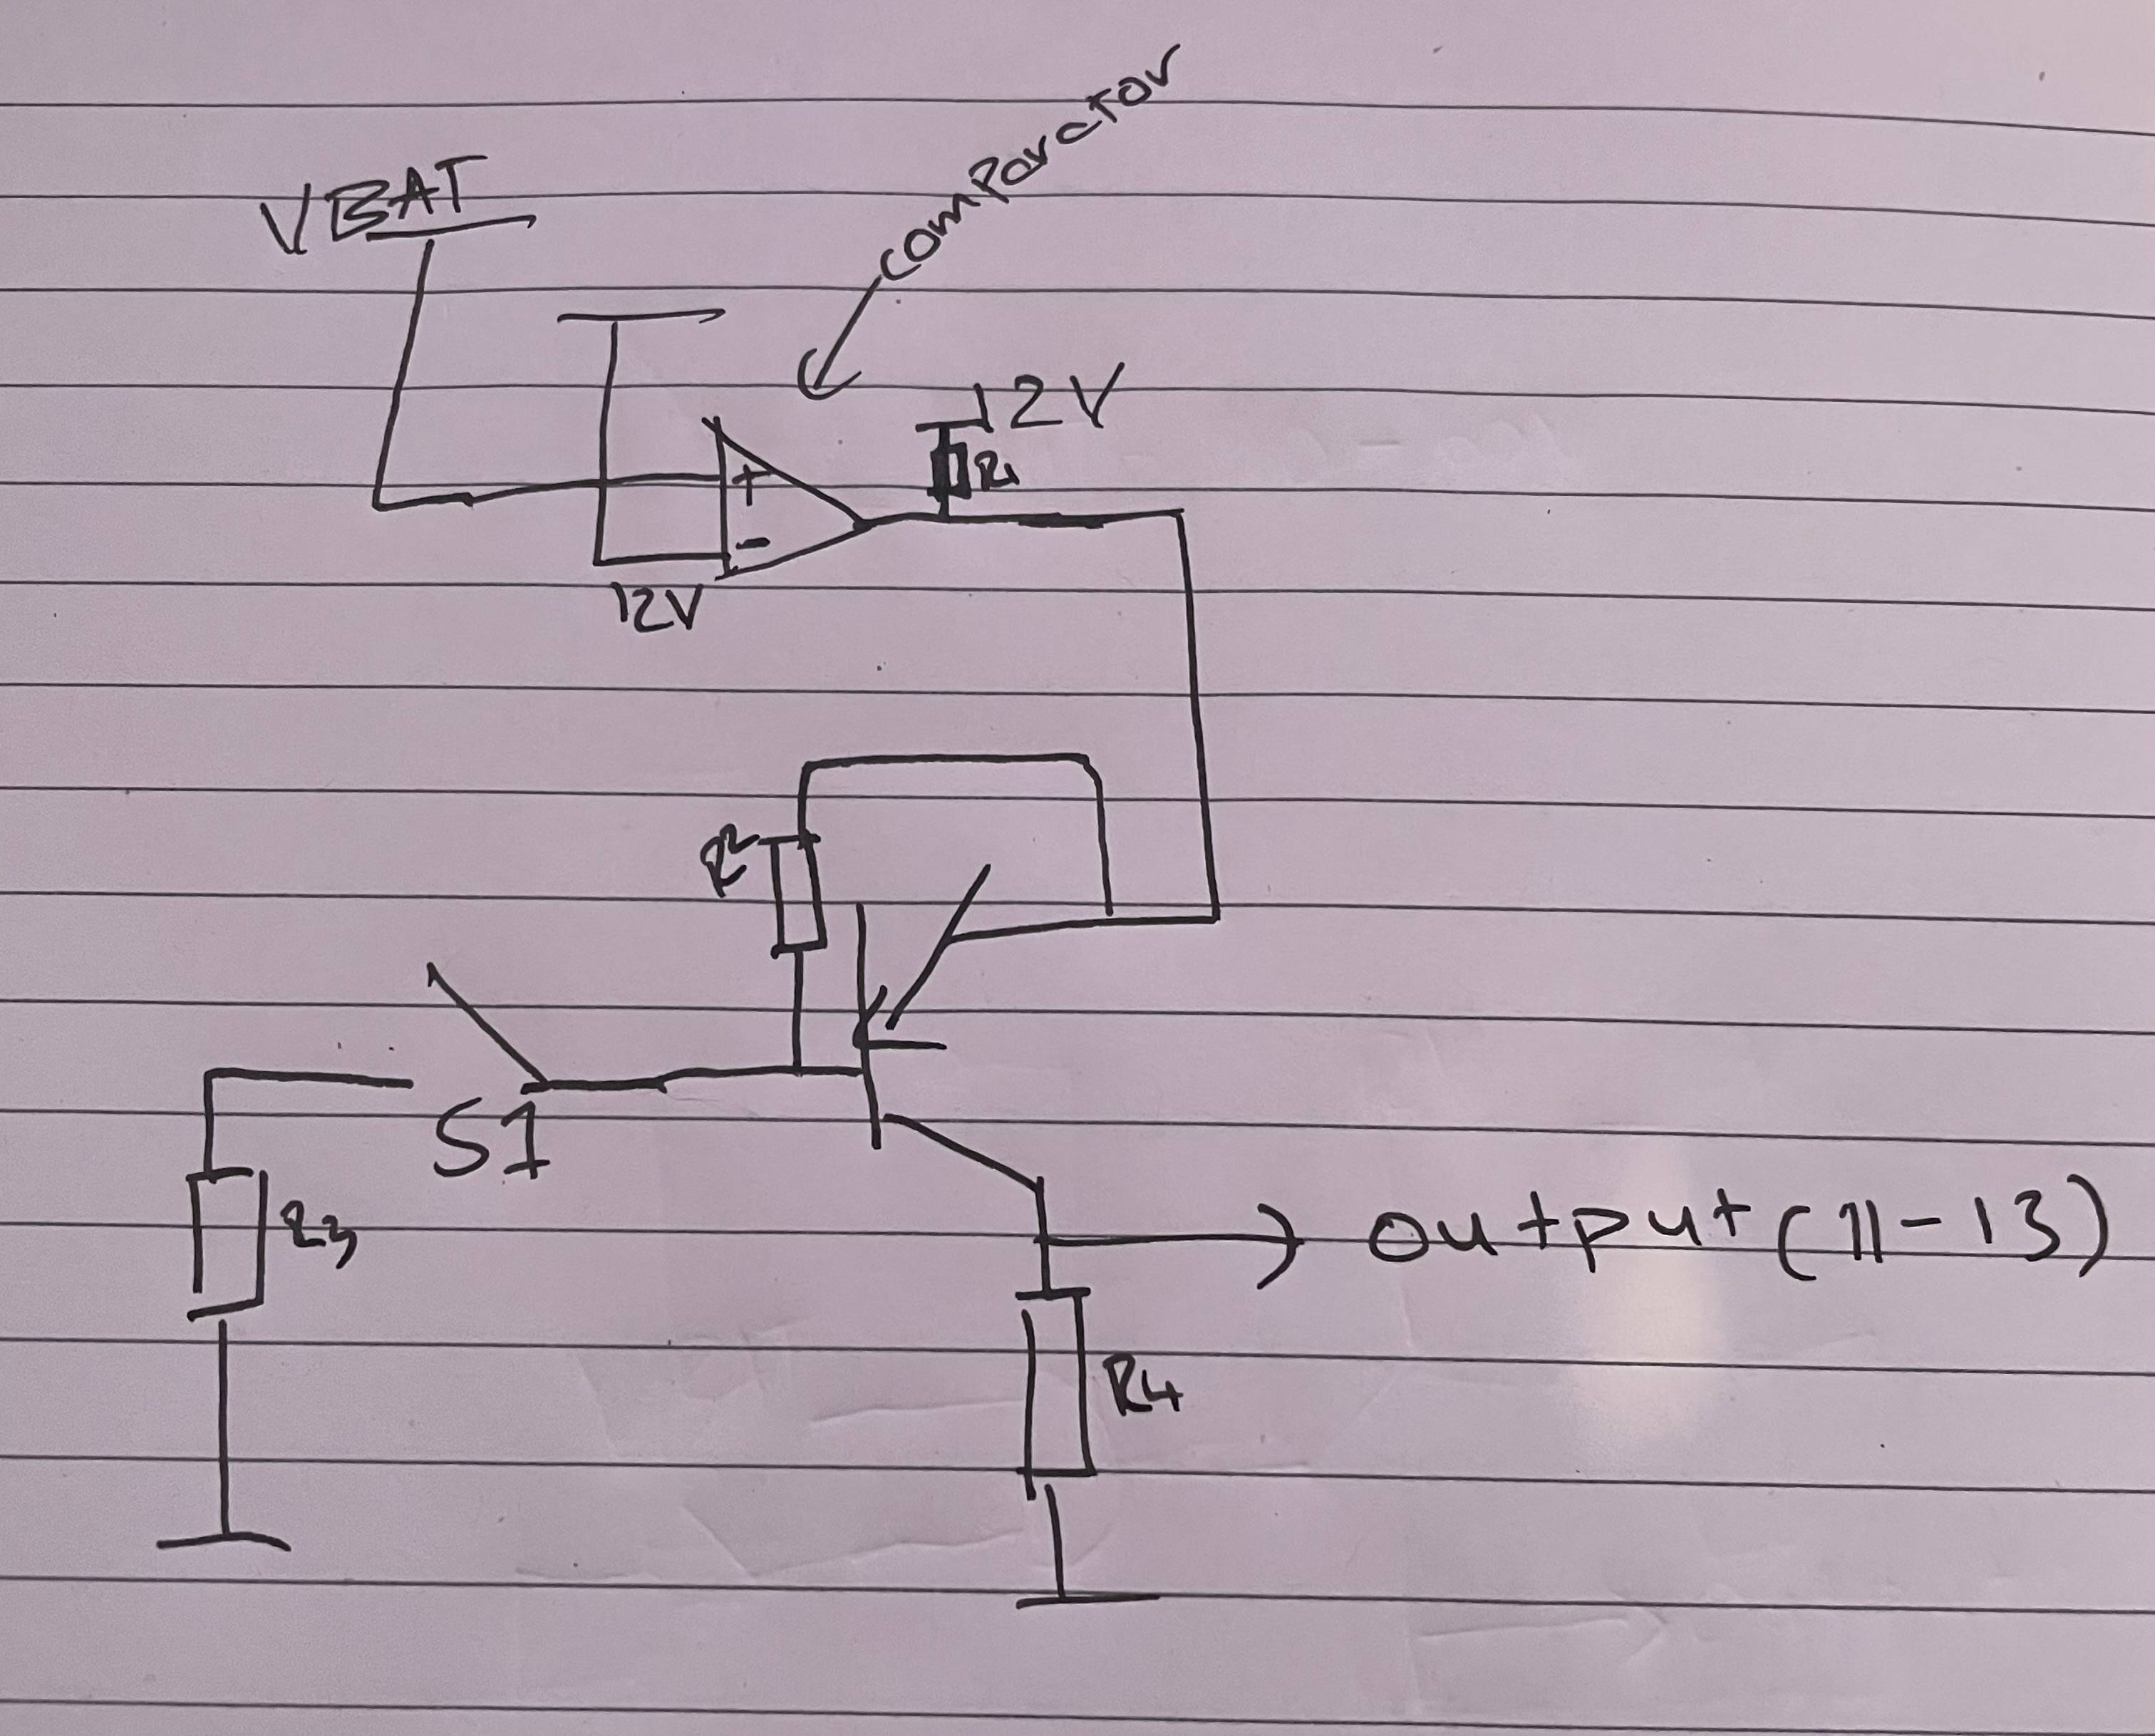 comparator
VBAT
12V
R1
+
-
12V
R2
S1
R3
output (11-13)
R4